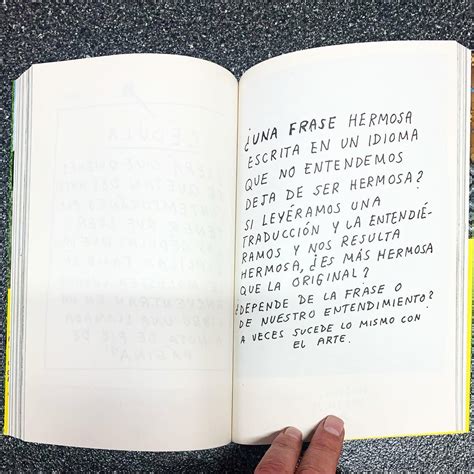 ¿UNA FRASE HERMOSA
ESCRITA EN UN IDIOMA
QUE NO ENTENDEMOS
DEJA DE SER HERMOSA?
SI LEYÉRAMOS UNA
TRADUCCIÓN Y LA ENTENDIÉ-
RAMOS Y NOS RESULTA
HERMOSA, ¿ES MÁS HERMOSA
QUE LA ORIGINAL?
¿DEPENDE DE LA FRASE O
DE NUESTRO ENTENDIMIENTO?
A VECES SUCEDE LO MISMO CON
EL ARTE.